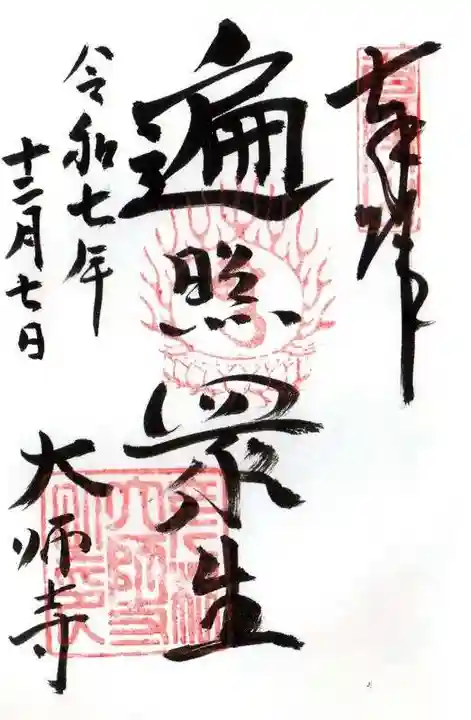 奉拝
遍照衆生
令和七年
十二月七日
大师寺